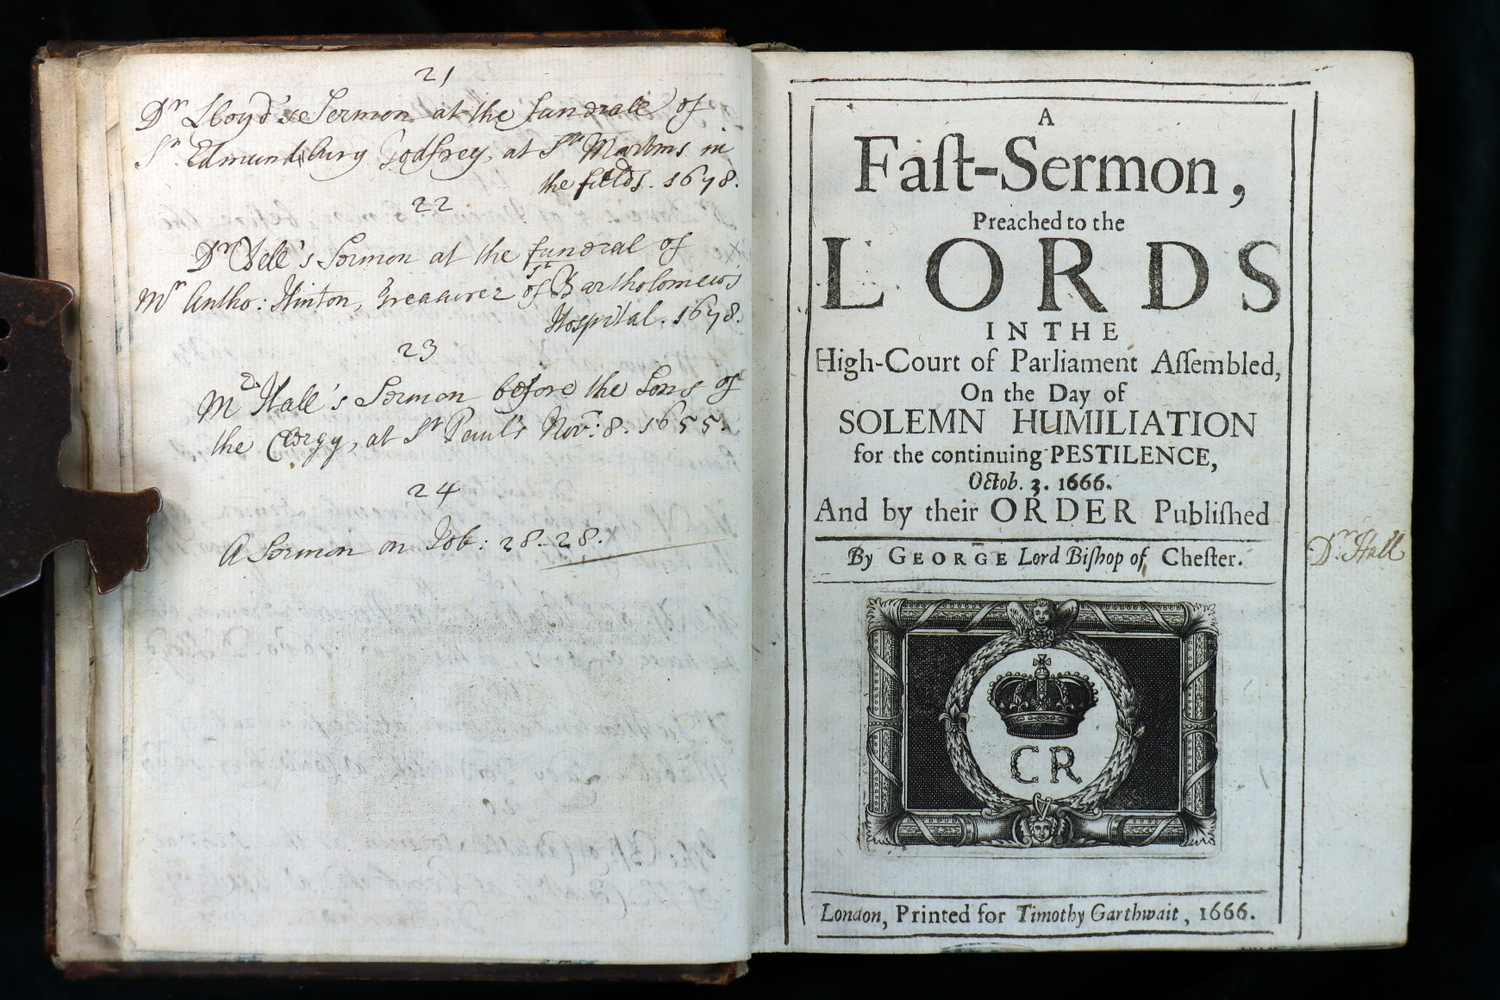 21
Dr Lloyd's Sermon at the funerale of
Sr. Edmundbury Godfrey, at St. Martins in
the fields. 1678.
22
Dr Bell's Sermon at the funeral of
Mr Antho: Hinton, Treasurer of St Bartholomew's
Hospital. 1678.
23
Mr Hall's Sermon before the Sons of
the Clergy, at St Paul's Nov: 8. 1655.
24
A Sermon on Job: 28. 28.
A
Faſt-Sermon,
Preached to the
LORDS
IN THE
High-Court of Parliament Aſſembled,
On the Day of
SOLEMN HUMILIATION
for the continuing PESTILENCE,
Octob. 3. 1666.
And by their ORDER Publiſhed
By GEORGE Lord Biſhop of Cheſter.
Dr. Hall
CR
London, Printed for Timothy Garthwait, 1666.